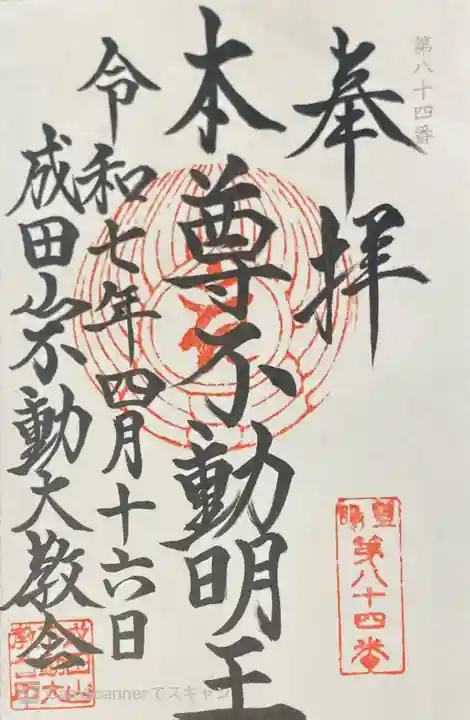 第八十四番
奉拝
第八十四番
本尊不動明王
令和七年四月十六日
成田山不動大教会
CamScannerでスキャン